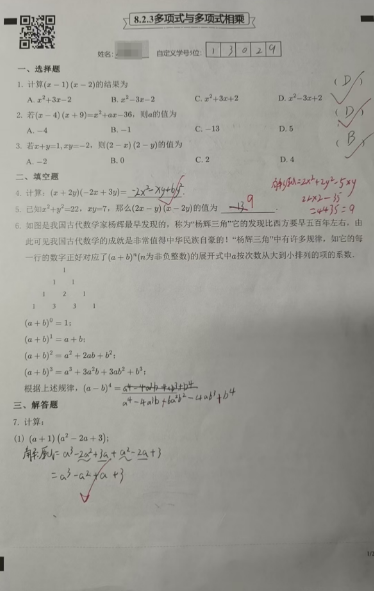 8.2.3多项式与多项式相乘
姓名: 自定义学号5位: 1 3 0 2 9
一、选择题
1. 计算(x－1)(x－2)的结果为 ( D )
A. x²+3x－2 B. x²－3x－2 C. x²+3x+2 D. x²－3x+2
2. 若(x－4)(x+9)=x²+ax－36，则a的值为 ( D )
A. －4 B. －1 C. －13 D. 5
3. 若x+y=1,xy=－2，则(2－x)(2－y)的值为 ( B )
A. －2 B. 0 C. 2 D. 4
二、填空题
4. 计算：(x+2y)(－2x+3y)= -2x²-xy+6y².
5. 已知x²+y²=22，xy=7，那么(2x－y)(x－2y)的值为 -13 9
=2x²+2y²-5xy
22×2-35
=44-35=9
6. 如图是我国古代数学家杨辉最早发现的，称为“杨辉三角”它的发现比西方要早五百年左右，由
此可见我国古代数学的成就是非常值得中华民族自豪的！“杨辉三角”中有许多规律，如它的每
一行的数字正好对应了(a+b)ⁿ(n为非负整数)的展开式中a按次数从大到小排列的项的系数.
1
1 1
1 2 1
1 3 3 1
(a+b)⁰=1;
(a+b)¹=a+b;
(a+b)²=a²+2ab+b²;
(a+b)³=a³+3a²b+3ab²+b³;
根据上述规律，(a－b)⁴=
a⁴-4a³b+6a²b²-4ab³+b⁴
三、解答题
7. 计算：
(1) (a+1)(a²－2a+3);
解:原式=a³-2a²+3a+a²-2a+3
=a³-a²+a+3